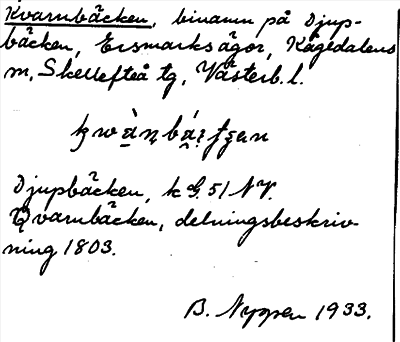 Kvarnbäcken, binamn på Djup-
bäcken, Ersmarksägor, Kågedalens
m, Skellefteå tg, Västerb. l.
Djupbäcken, k G. 51 NV.
Qvarnbäcken, delningsbeskriv-
ning 1803.
B. Nyman 1933.